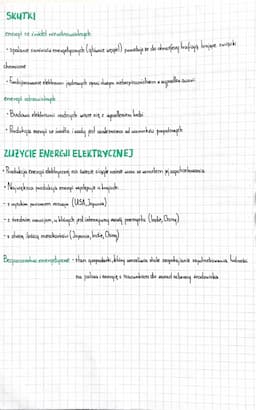 SKUTKI
energii ze źródeł nieodnawialnych
- spalanie surowców energetycznych (głównie węgla) powoduje że do atmosfery trafiają trujące związki
chemiczne
- Funkcjonowanie elektrowni jądrowych niebezpieczeństwem w wypadku awarii
energii odnawialnych
- Budowa elektrowni wodnych wiąże się z wysiedleniem ludzi
- Produkcja energii ze światła i wody jest uzależniona od warunków pogodowych
ZUŻYCIE ENERGII ELEKTRYCZNEJ
• Produkcja energii elektrycznej na świecie ciągle wzrasta wraz ze wzrostem jej zapotrzebowania
• Największa produkcja energii występuje w krajach:
- z wysokim poziomem rozwoju (USA, Japonia)
- z średnim rozwojem, w których jest intensywny rozwój przemysłu (Indie, Chiny)
- z dużą liczbą mieszkańców (Japonia, Indie, Chiny)
Bezpieczeństwo energetyczne - stan gospodarki, który umożliwia stałe zaspokajanie zapotrzebowania ludności
na paliwa i energię z zachowaniem środowiska